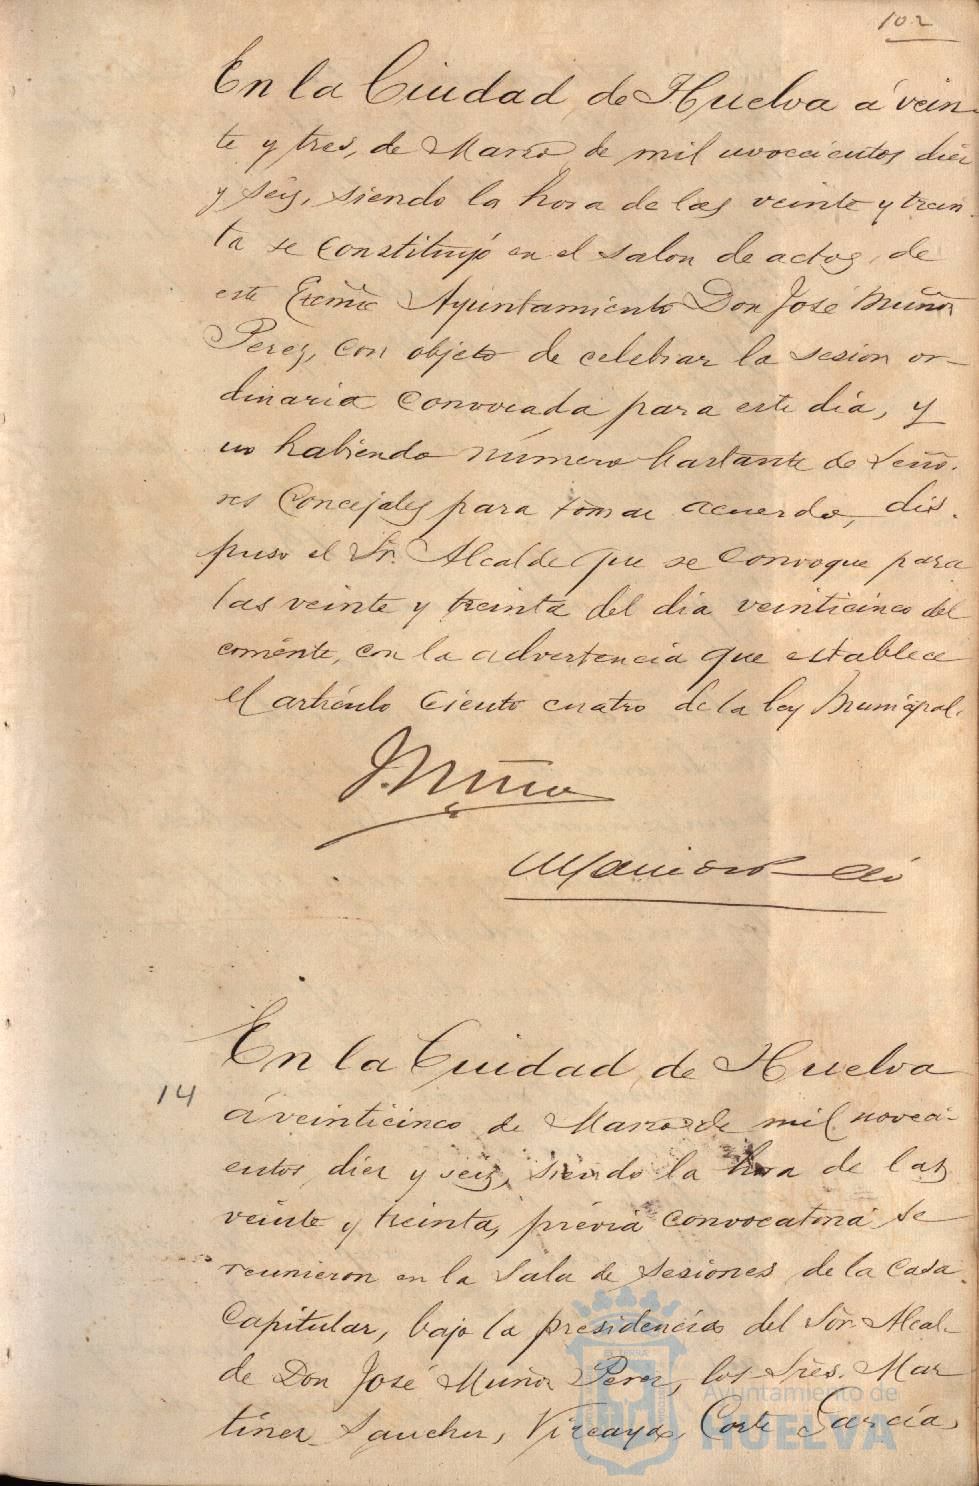 102
En la Ciudad de Huelva á vein-
te y tres, de Marzo de mil novecientos diez
y seis, siendo la hora de las veinte y trein-
ta se constituyó en el salon de actos, de
este Excmo Ayuntamiento Don José Muñoz
Perez, con objeto de celebrar la sesion or-
dinaria convocada para este dia, y
no habiendo número bastante de Seño-
res Concejales para tomar acuerdo, dis-
puso el Sr. Alcalde que se convoque para
las veinte y treinta del dia veinticinco del
corriente, con la advertencia que establece
el artículo ciento cuatro de la ley Municipal.
J. Muñoz
14
En la Ciudad de Huelva
á veinticinco de Marzo de mil noveci-
entos diez y seis, siendo la hora de las
veinte y treinta, prévia convocatoria se
reunieron en la Sala de Sesiones de la Casa
Capitular, bajo la presidencia del Sõr. Alcal-
de Don José Muñoz Perez, los Sres. Mar
tinez Sanchez, Vizcaya, Corte Garcia,
Ayuntamiento de
HUELVA